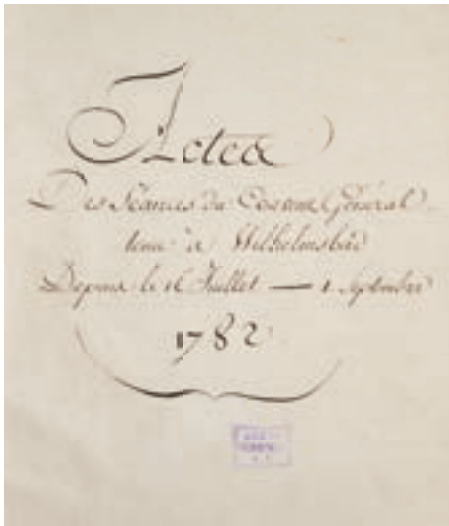 Actes
Des Séances du Convent Général
tenu à Wilhelmsbad
Depuis le 16 Juillet — 1 Septembre
1782